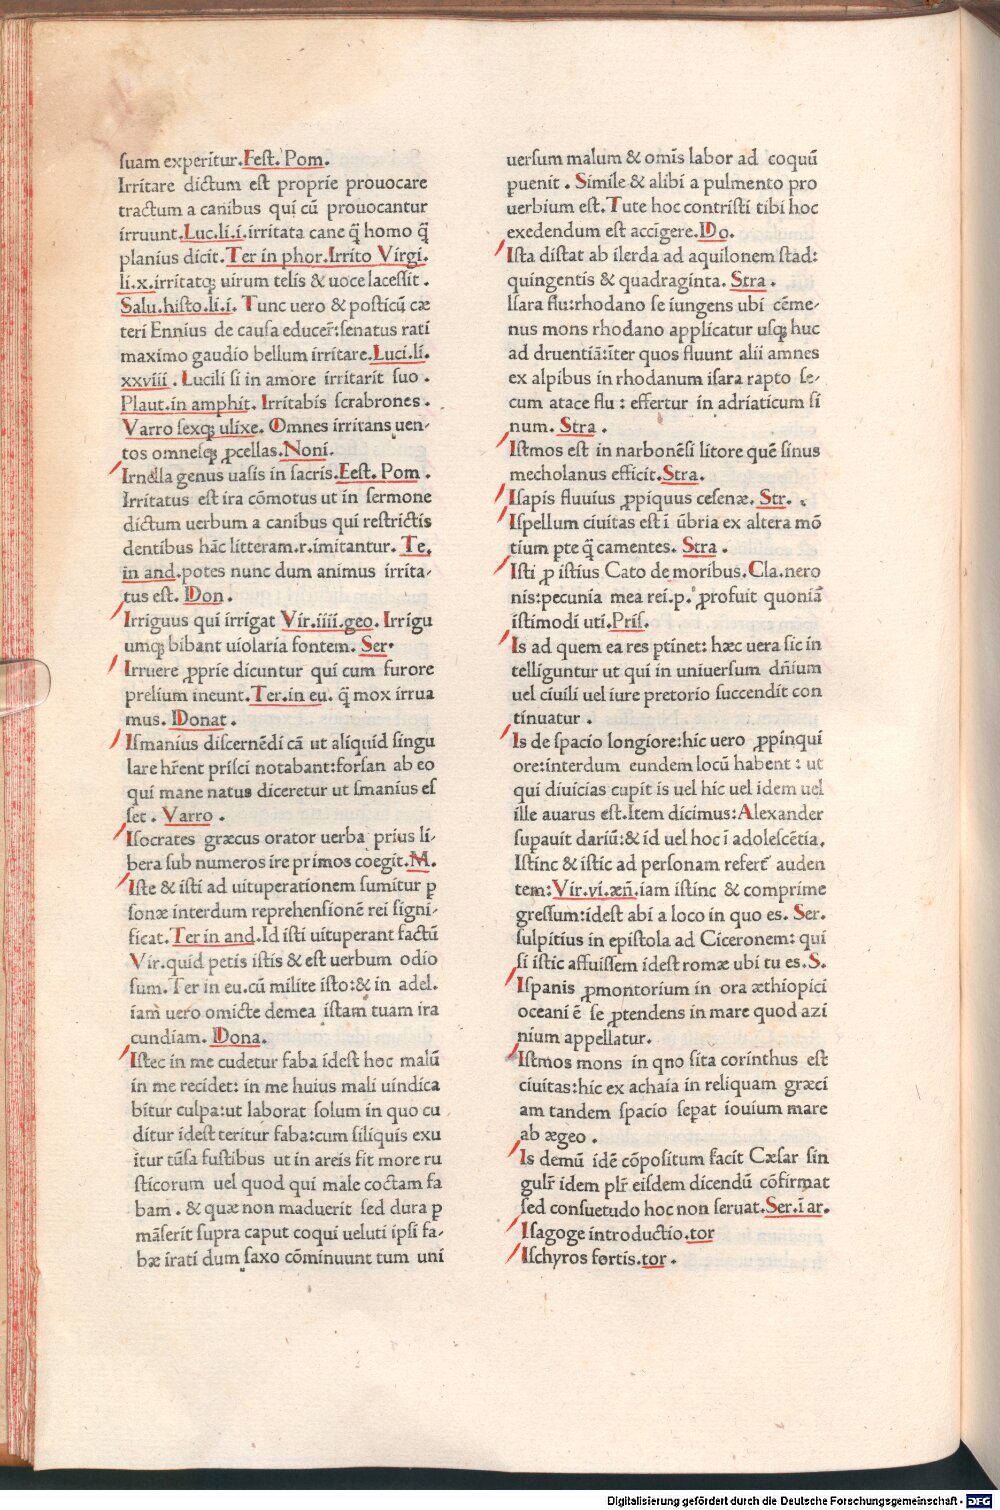 suam experitur.Fest. Pom.
Irritare dictum est proprie prouocare
tractum a canibus qui cū prouocantur
irruunt.Luc.li.i.irritata cane q̄ homo q̄
planius dicit. Ter in phor.Irrito Virgi.
li.x.irritatqꝫ uirum telis & uoce lacessit .
Salu.histo.li.i. Tunc uero & posticū cæ
teri Ennius de causa educer̄:senatus rati
maximo gaudio bellum irritare.Luci.li.
xxviii . Lucili si in amore irritarit suo .
Plaut.in amphit. Irritabis scrabrones .
Varro sexqꝫ ulixe. Omnes irritans uen-
tos omnesqꝫ ꝓcellas.Noni.
Irnella genus uasis in sacris.Fest. Pom .
Irritatus est ira cōmotus ut in sermone
dictum uerbum a canibus qui restrictis
dentibus hāc litteram.r.imitantur. Te.
in and.potes nunc dum animus irrita-
tus est. Don .
Irriguus qui irrigat Vir.iiii.geo. Irrigu
umqꝫ bibant uiolaria fontem. Ser.
Irruere ꝓprie dicuntur qui cum furore
prelium ineunt.Ter.in eu. q̄ mox irrua
mus. Donat .
Ismanius discernēdi cā ut aliquid singu
lare hr̄ent prisci notabant:forsan ab eo
qui mane natus diceretur ut smanius es
set . Varro .
Isocrates græcus orator uerba prius li-
bera sub numeros ire primos coegit.M.
Iste & isti ad uituperationem sumitur ꝑ
sonæ interdum reprehensionē rei signi-
ficat.Ter in and.Id isti uituperant factū
Vir.quid petis istis & est uerbum odio
sum.Ter in eu.cū milite isto:& in adel.
iam uero omicte demea istam tuam ira
cundiam. Dona.
Istec in me cudetur faba idest hoc malū
in me recidet: in me huius mali uindica
bitur culpa:ut laborat solum in quo cu
ditur idest teritur faba:cum siliquis exu
itur tūsa fustibus ut in areis fit more ru
sticorum uel quod qui male coctam fa
bam . & quæ non maduerit sed dura ꝑ
māserit supra caput coqui ueluti ipsi fa-
bæ irati dum saxo cōminuunt tum uni
uersum malum & omīs labor ad coquū
ꝑuenit . Simile & alibi a pulmento pro
uerbium est.Tute hoc contristi tibi hoc
exedendum est accigere.Do.
Ista distat ab ilerda ad aquilonem stad:
quingentis & quadraginta. Stra .
Isara flu:rhodano se iungens ubi cēme-
nus mons rhodano applicatur usqꝫ huc
ad druentiā:īter quos fluunt alii amnes
ex alpibus in rhodanum isara rapto se-
cum atace flu : effertur in adriaticum si
num. Stra .
Istmos est in narbonēsi litore quē sinus
mecholanus efficit.Stra.
Isapis fluuius ꝓpiquus cesenæ. Str. .
Ispellum ciuitas est ī ūbria ex altera mō
tium ꝑte q̄ camentes. Stra .
Isti ꝓ istius Cato de moribus.Cla.nero
nis:pecunia mea rei.p. ꝓfuit quoniā
istimodi uti.Pris.
Is ad quem ea res ꝑtinet: hæc uera sic in
telliguntur ut qui in uniuersum dn̄ium
uel ciuili uel iure pretorio succendit con
tinuatur .
Is de spacio longiore:hic uero ꝓpinqui
ore:interdum eundem locū habent : ut
qui diuicias cupit is uel hic uel idem uel
ille auarus est.Item dicimus:Alexander
supauit dariū:& id uel hoc ī adolescētia.
Istinc & istic ad personam refert᷑ auden
tem:Vir.vi.æn̄.iam istinc & comprime
gressum:idest abi a loco in quo es. Ser.
sulpitius in epistola ad Ciceronem: qui
si istic affuissem idest romæ ubi tu es.S.
Ispanis ꝓmontorium in ora æthiopici
oceani ē se ꝓtendens in mare quod azi
nium appellatur.
Istmos mons in qno sita corinthus est
ciuitas:hic ex achaia in reliquam græci
am tandem spacio seꝑat iouium mare
ab ægeo .
Is demū idē cōpositum facit Cæsar sin
gulr̄ idem plr̄ eisdem dicendū cōfirmat
sed consuetudo hoc non seruat.Ser.ī ar.
Isagoge introductio.tor
Ischyros fortis.tor .
Digitalisierung gefördert durch die Deutsche Forschungsgemeinschaft - DFG